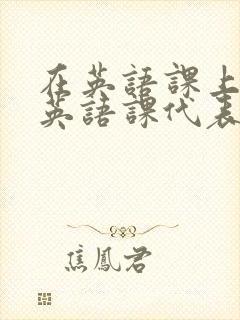 在英語課上
英語課代表
焦鳳君